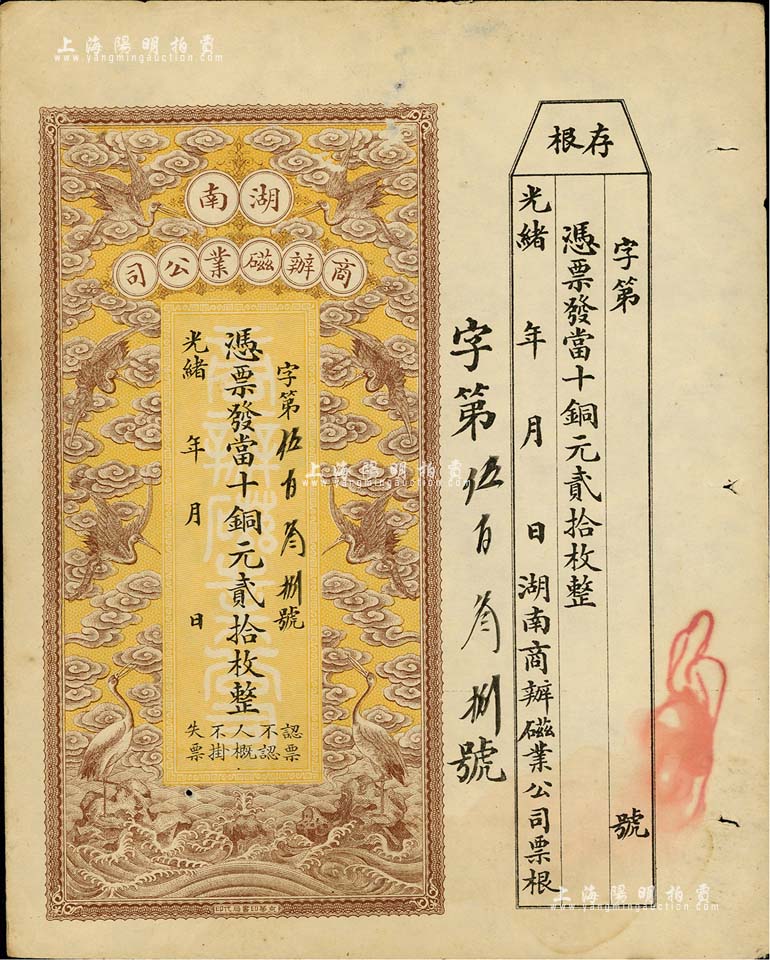 上海陽明拍賣
www.yangmingauction.com
存根
字第 號
憑票發當十銅元貳拾枚整
光緒 年 月 日湖南商辦磁業公司票根
字第伍百叁捌號
湖南
商辦磁業公司
字第伍百叁捌號
憑票發當十銅元貳拾枚整
光緒 年 月 日
認票不認人概不掛失票
上海陽明拍賣
www.yangmingauction.com
上海陽明拍賣
www.yangmingauction.com